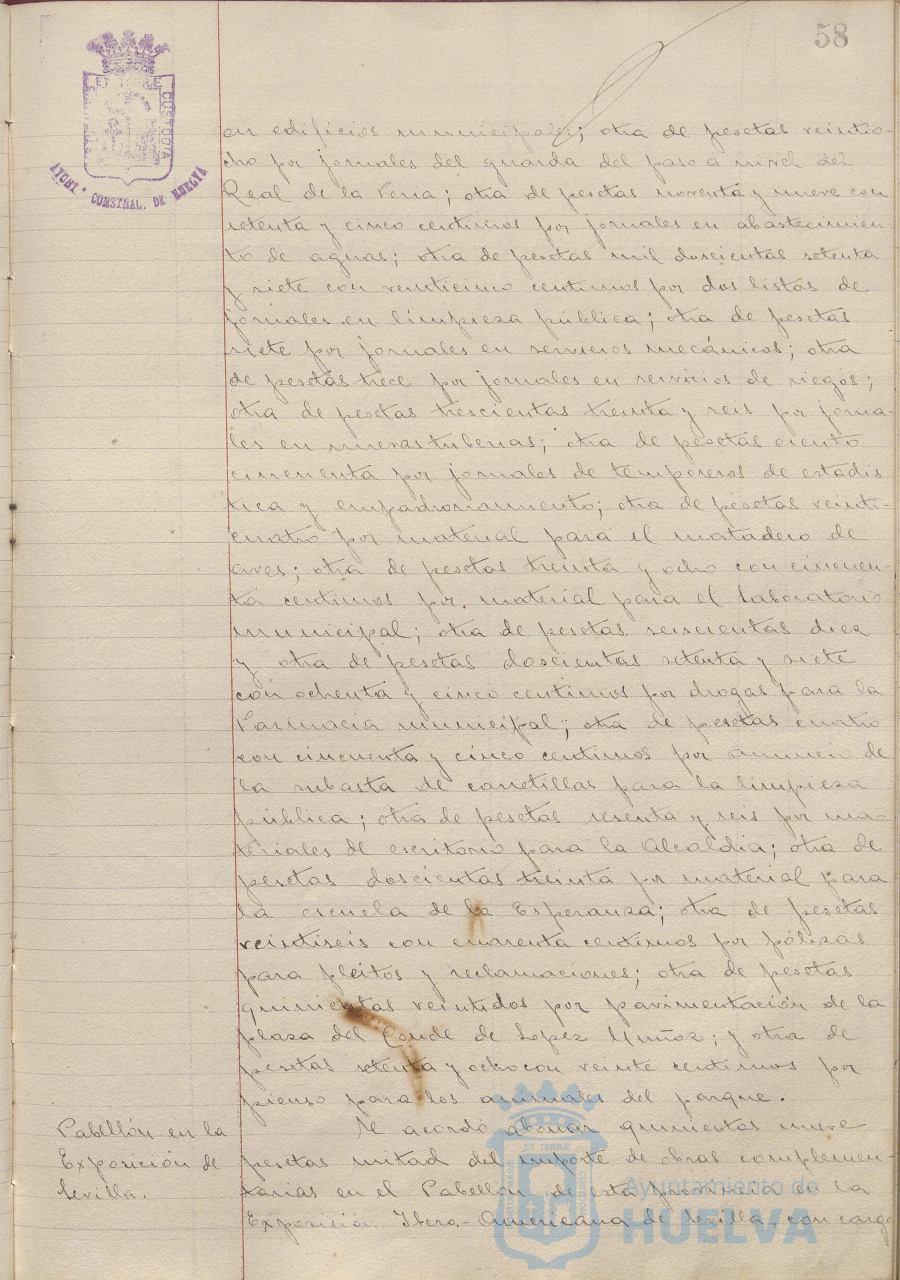 58
AYUNT. CONSTNAL. DE HUELVA
CUSTODIA
en edificios municipales; otra de pesetas veintio-
cho por jornales del guarda del paso a nivel del
Real de la Feria; otra de pesetas noventa y nueve con
setenta y cinco centimos por jornales en abastecimien-
to de aguas; otra de pesetas mil doscientas setenta
y siete con veinticinco centimos por dos listas de
jornales en limpieza pública; otra de pesetas
siete por jornales en servicios mecánicos; otra
de pesetas trece por jornales en servicios de riegos;
otra de pesetas trescientas treinta y seis por jorna-
les en nuevas tuberias; otra de pesetas ciento
cincuenta por jornales de temporeros de estadis
tica y empadronamiento; otra de pesetas veinti-
cuatro por material para el matadero de
aves; otra de pesetas treinta y ocho con cincuen-
ta centimos por material para el Laboratorio
municipal; otra de pesetas seiscientas diez
y otra de pesetas doscientas setenta y siete
con ochenta y cinco centimos por drogas para la
Farmacia municipal; otra de pesetas cuatro
con cincuenta y cinco centimos por anuncio de
la subasta de carretillas para la limpieza
pública; otra de pesetas sesenta y seis por ma-
teriales de escritorio para la Alcaldia; otra de
pesetas doscientas treinta por material para
la escuela de la Esperanza; otra de pesetas
veintiseis con cuarenta centimos por pólizas
para pleitos y reclamaciones; otra de pesetas
quinientas veintidos por pavimentación de la
plaza del Conde de Lopez Muñoz; y otra de
pesetas setenta y ocho con veinte centimos por
pienso para los animales del parque.
Pabellón en la
Exposición de
Sevilla.
Se acordó abonar quinientas nueve
pesetas mitad del importe de obras complemen-
tarias en el Pabellón de esta provincia en la
Exposición Ibero-Americana de Sevilla, con cargo
Ayuntamiento de
HUELVA